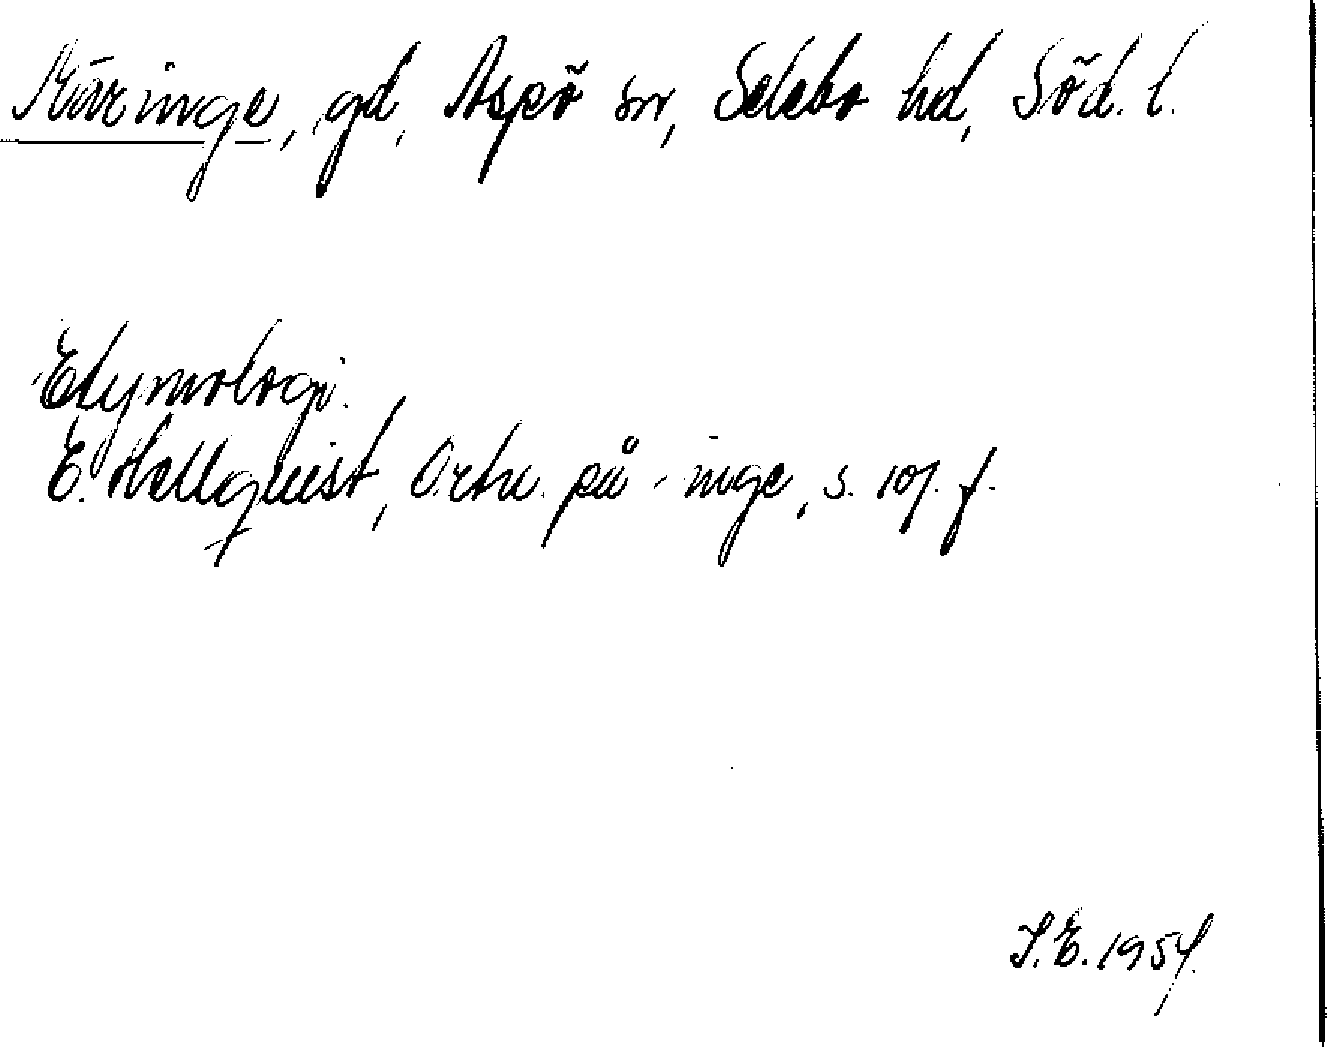 Märinge, gd, Aspö sn, Selebo hd, Söd. l.
Etymologi.
E. Hellquist, Ortn. på -inge, s. 107 f.
S.E. 1954.